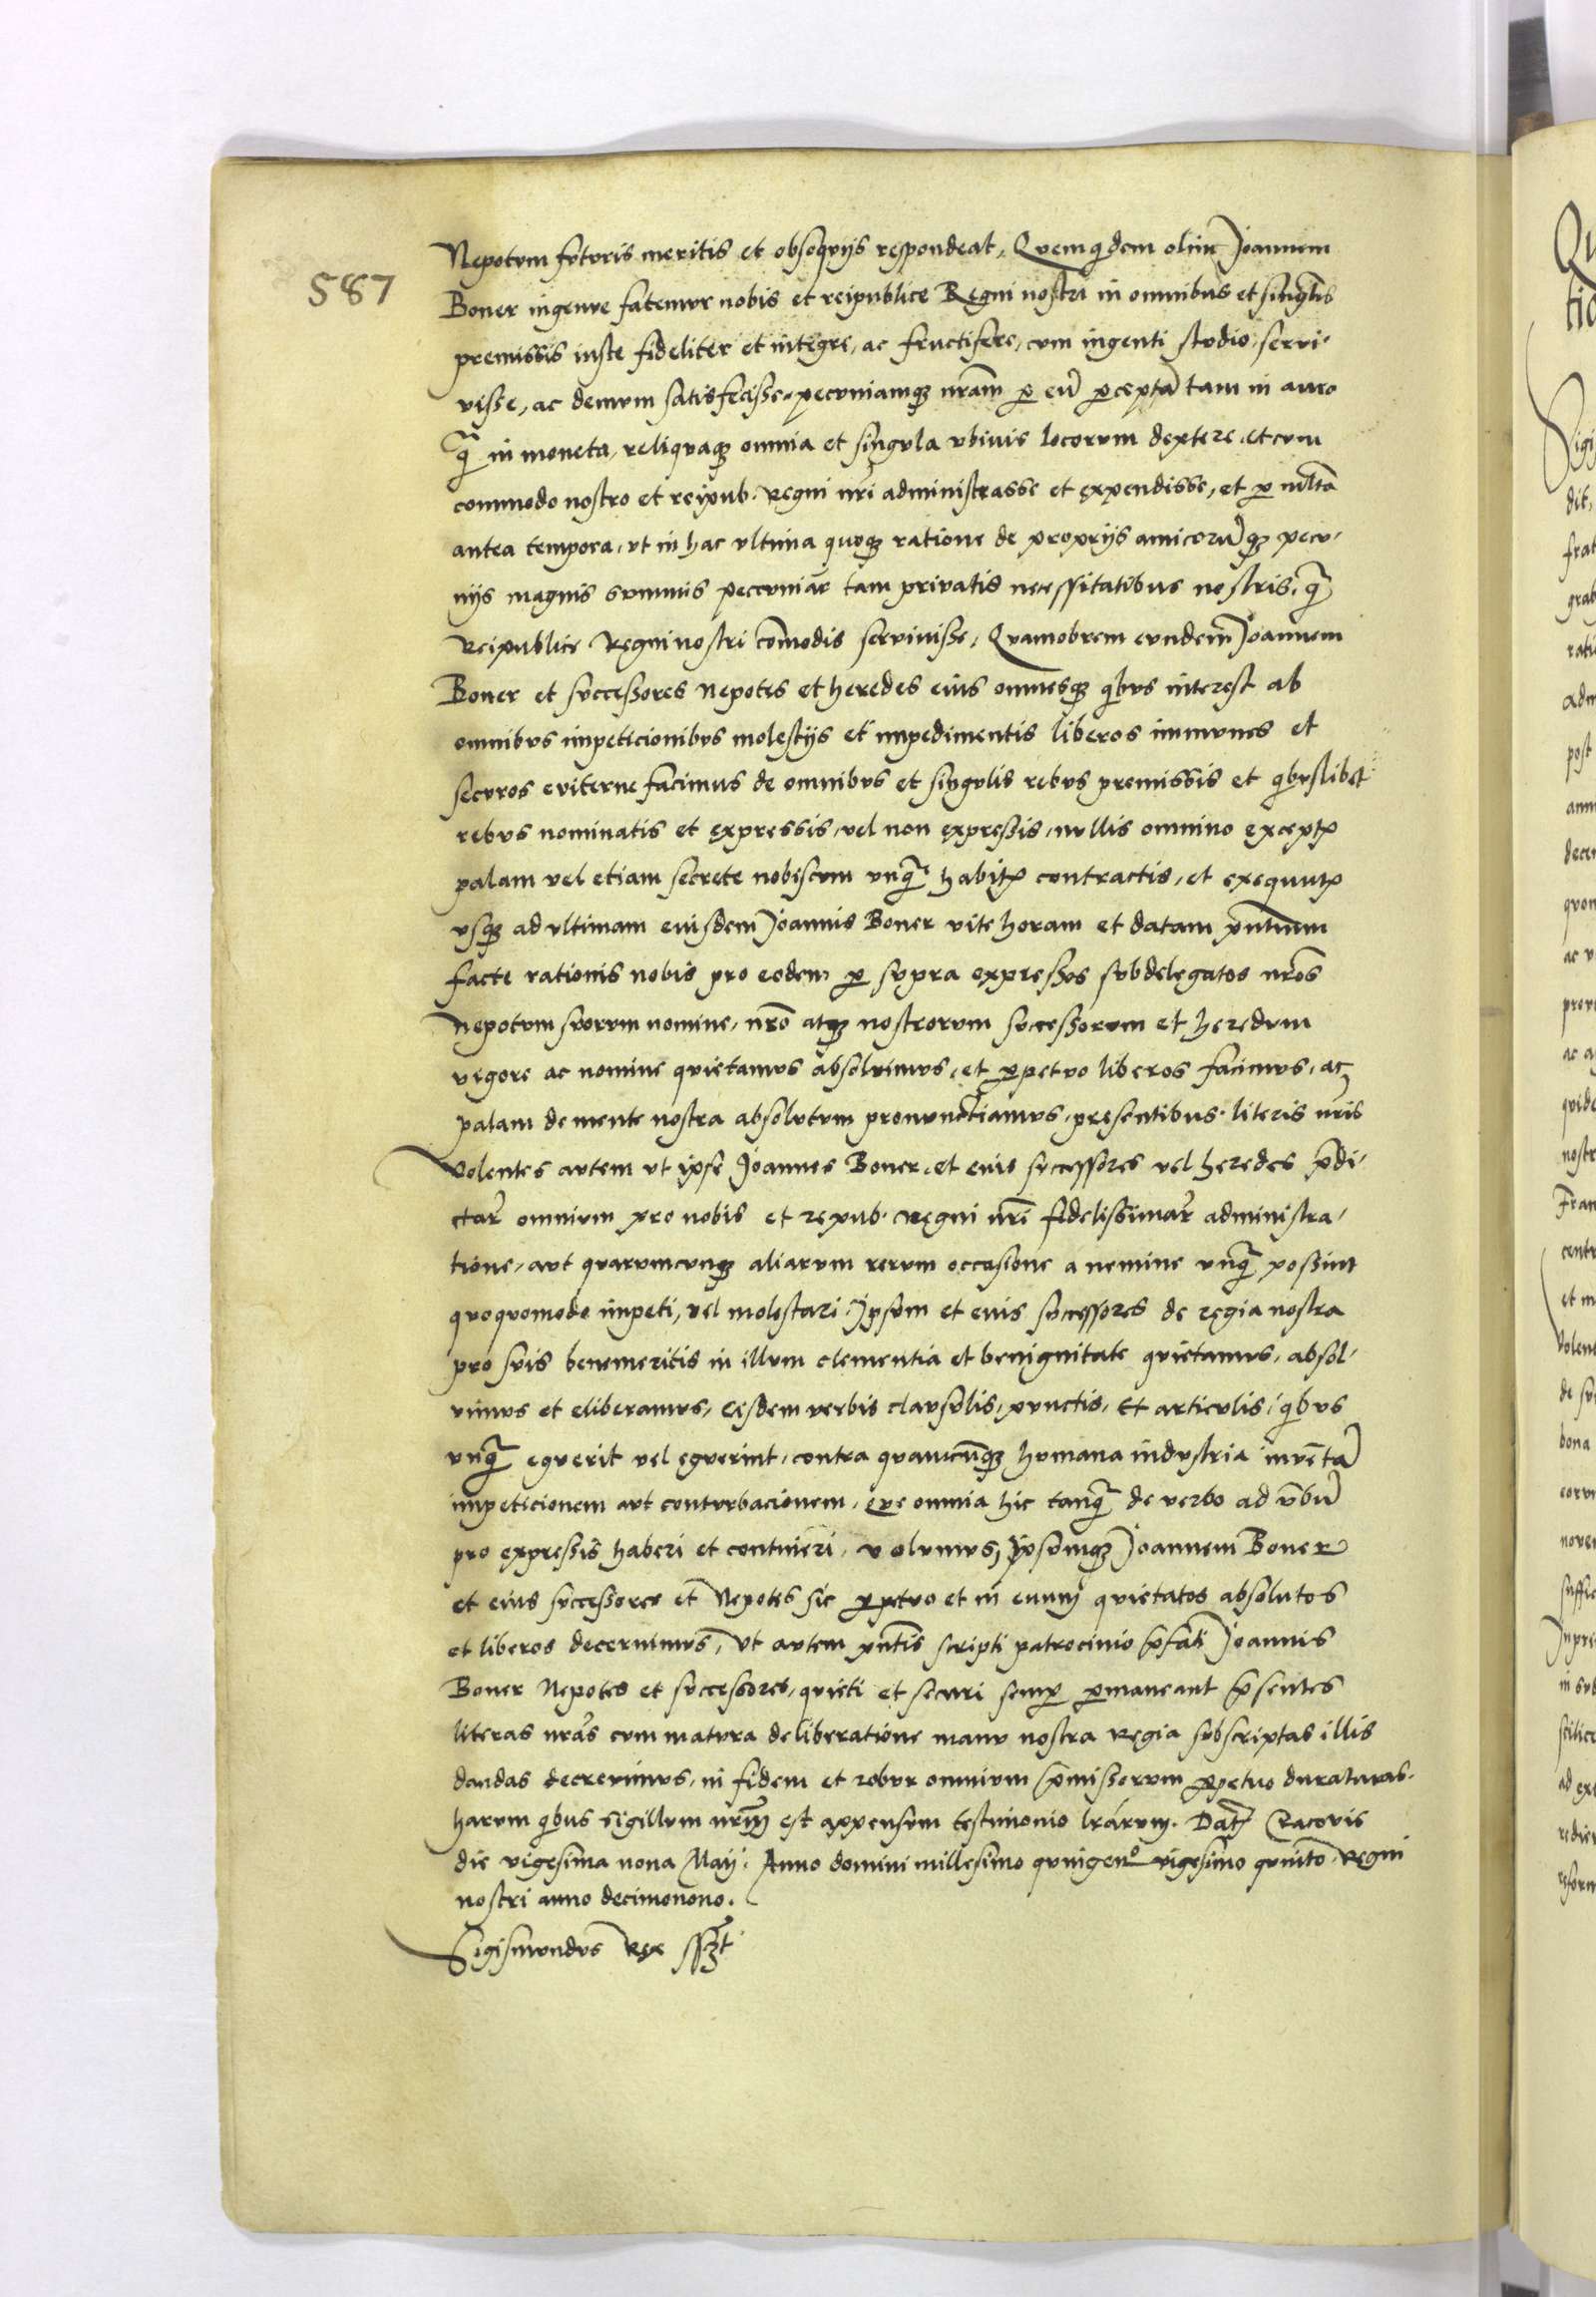 587
Nepotvm fvtvris meritis et obseqvijs respondeat, Qvemqdem olim Joannem
Boner ingenve fatemvr nobis et reipublice Regni nostri in omnibus et singlis
premissis iuste fideliter et integre, ac fructifere, cvm ingenti stvdio, servi-
visse, ac demvm satisfecisse, pecvniamq₃ nrãm ꝑ eũ ꝑceptã tam in avro
q̃ in moneta, reliqvaq₃ omnia et singvla vbivis locorvm dextere, et cvm
commodo nostro et reipub. Regni nrĩ administrasse et expendisse, et ꝑ mltã
antea tempora, vt in hac vltima qvoq₃ ratione de proprijs amicorũq₃ pecv-
nijs magnis svmmis pecvniar̃ tam privatis necessitatibus nostris, q̃
Reipublice Regni nostri cõmodis servivisse, Qvamobrem evndem Joannem
Boner et svccessores Nepotes et heredes eius omnesq₃ qibvs interest ab
omnibvs impeticionibvs molestijs et impedimentis liberos immvnes et
secvros eviterne facimus de omnibvs et singvlis rebvs premissis et qibvslibet
rebvs nominatis et expressis, vel non expressis, nvllis omnino exceptꝭ
palam vel etiam secrete nobiscvm vnq̃ habitꝭ contractis, et exeqvutꝭ
vsq₃ ad vltimam eiusdem Joannis Boner vite horam et datam pñtium
facte rationis nobis pro eodem ꝑ svpra expressos svbdelegatos nrõs
Nepotvm svorvm nomine, nrõ atq₃ nostrorvm svccessorvm et heredvm
vigore ac nomine qvietamvs absolvimvs, et ꝑpetvo liberos facimvs, ac
palam de mente nostra absolvtvm pronvnctiamvs, presentibus literis nrĩs
Volentes avtem vt ipse Joannes Boner, et eivs svccessores vel heredes p̃di-
ctar̃ omnivm pro nobis et repub. Regni nrĩ fidelissimar̃ administra-
tione, avt qvarvmcvnq₃ aliarvm rervm occasione a nemine vnq̃ possint
qvoqvomodo impeti, vel molestari, Jpsvm et eivs svccessores de regia nostra
pro svis benemeritis in illvm clementia et benignitate qvietamvs, absol-
vimvs et eliberamvs, Eisdem verbis clavsvlis, pvnctis, Et articvlis, qibvs
vnq̃ egverit vel egverint, contra qvamcũq₃ hvmana indvstria invẽtã
impeticionem avt contvrbacionem, qve omnia hic tanq̃ de verbo ad ṽbũ
pro expressis haberi et contineri, volvmvs, ipsvmq₃ Joannem Boner
et eius svccessores et Nepotes sic ꝑpetvo et in evum qvietatos absolutos
et liberos decernimvs, Vt avtem pñtis scripti patrocinio p̃fati Joannis
Boner Nepotes et svccessores, qvieti et secvri semꝑ ꝑmaneant p̃sentes
literas nrãs cvm matvra deliberatione manv nostra Regia svbscriptas illis
dandas decrevimvs, in fidem et robvr omnivm p̃missorvm ꝑpetuo duraturas.
harvm qibus sigillvm nrm̃ est appensvm testimonio lrãrvm. Datꝭ Cracovie
die vigesima nona Maij. Anno domini millesimo qvingenᵒ vigesimo qvinto, Regni
nostri anno decimonono.
Sigismvndvs Rex sszt